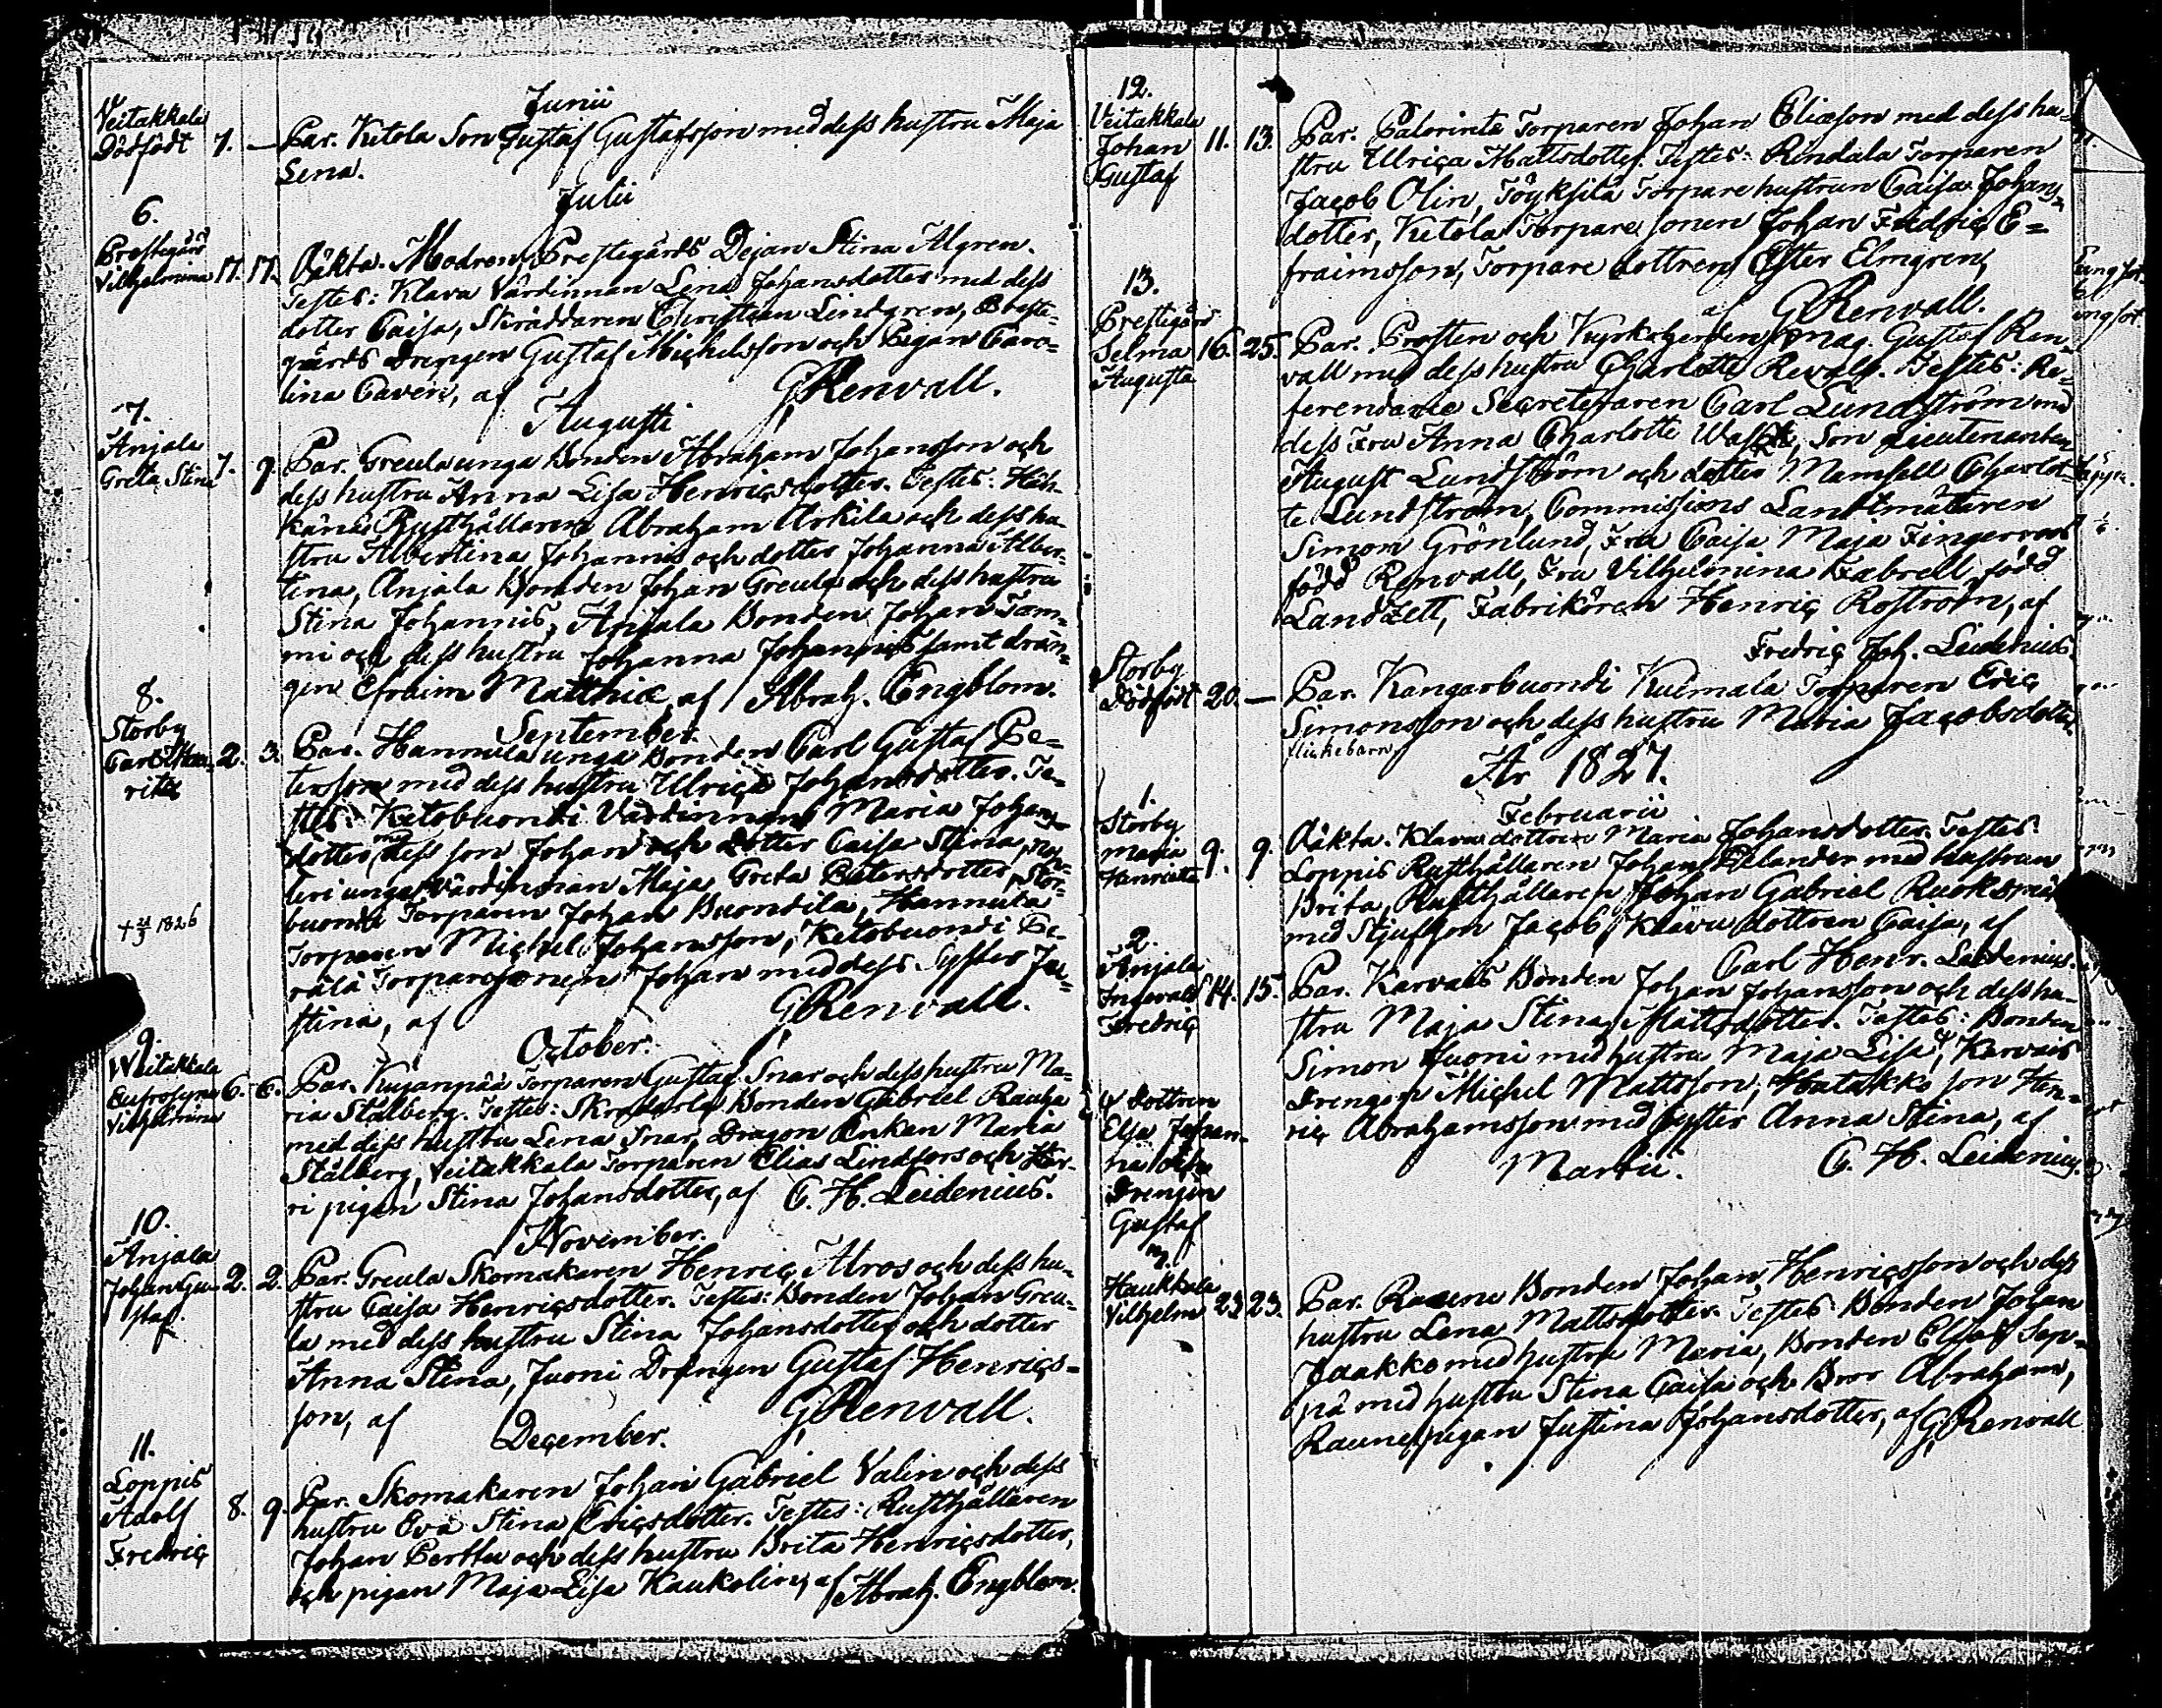 Junii
Veitakkala
Dödfödt 7. — Par. Ketola Son Gustaf Gustafsson med dess hustru Maja
Lena.
Julii
6.
Prestegård
Vilhelmina 17. 17. Oäkta. Modren Prestegårds Dejan Stina Algren.
Testes: Klava Värdinnan Lena Johansdotter med dess
dotter Caisa, Skräddaren Christian Lindgren, Preste-
gårds Drengen Gustaf Michelsson och Pigan Caro-
lina Caven, af GRenvall.
Augusti
7.
Anjala
Greta Stina 7. 9. Par. Greula unga Bonden Abraham Johansson och
dess hustru Anna Lisa Henricsdotter. Testes:
Rusthållaren Abraham Arkila och dess hu-
stru Albertina Johannis och dotter Johanna Alber-
tina, Anjala Bonden Johan Greula och dess hustru
Stina Johannis, Anjala Bonden Johan Tam-
mi och dess hustru Johanna Johannis samt drän-
gen Efraim Matthiæ, af Abrah. Engblom.
September.
8.
Storby
Carl Hen-
rik 2. 3. Par. Hannula unga Bonden Carl Gustaf Pe-
tersson med dess hustru Ulrica Johansdotter. Te-
stes: Ketobuondi Värdinnan Maria Johans-
dotter med dess son Johan och dotter Caisa Stina,
unga Värdinnan Maja Greta Petersdotter, Stor-
buondi Torparen Johan Buondila, Hannula
Torparen Michel Johansson, Ketobuondi Pe-
rälä Torparesonen Johan med dess Syster Ju-
stina, af GRenvall.
† 21/3 1826
October.
9.
Veitakkala
Eufrosyna
Vilhelmina 6. 6. Par. Kujanpää Torparen Gustaf Snar och dess hustru Ma-
ria Stålberg. Testes: Bonden Gabriel Rauha
med dess hustru Lena Snar, Dragon Enkan Maria
Stålberg, Veitakkala Torparen Elias Lindfors och Har-
ri pigan Stina Johansdotter, af C. H. Leidenius.
November.
10.
Anjala
Johan Gu-
staf 2. 2. Par. Greula Skomakaren Henric Alros och dess hu-
stru Caisa Henricsdotter. Testes: Bonden Johan Greu-
la med dess hustru Stina Johansdotter och dotter
Anna Stina, Juoni Drängen Gustaf Henrics-
son, af GRenvall.
December.
11.
Loppis
Adolf
Fredric 8. 9. Par. Skomakaren Johan Gabriel Valin och dess
hustru Eva Stina Ericsdotter. Testes: Rusthållaren
Johan Perttu och dess hustru Brita Henricsdotter,
och pigan Maja Lisa Kaukolin, af Abrah. Engblom.
12.
Veitakkala
Johan
Gustaf 11. 13. Par. Palorinta Torparen Johan Eliæson med dess hu-
stru Ulrica Mattsdotter. Testes: Rindala Torparen
Jacob Olin, Töyksilä Torpare hustrun Caisa Johans-
dotter, Ketola Torpare sonen Johan Fredric E-
fraimsson, Torpare dottren Ester Elmgren,
af GRenvall.
13.
Prestegård
Selma
Augusta 16. 25. Par. Prosten och Kyrkoherden Mag. Gustaf Ren-
vall med dess hustru Charlotte Revall. Testes: Re-
ferendarie Secreteraren Carl Lundström med
dess Fru Anna Charlotte, Son Lieutenanten
August Lundström och dotter Mamsell Charlot-
te Lundström, Commissions Landtmätaren
Simon Grönlund, Fru Caisa Maja Fingerroos
född Renvall, Fru Vilhelmina Fabrell född
Landzett, Fabrikören Henric Roström, af
Fredric Joh. Leidenius.
Storby
Dödfödt 20. — Par. Kangarbuondi Kulmala Torparen Eric
Simonsson och dess hustru Maria Jacobsdotter.
flickebarn
År 1827.
Februarii
1.
Storby
Maria
Henrietta 9. 9. Oäkta. Klava dottren Maria Johansdotter. Testes:
Loppis Rusthållaren Johan Elander med hustrun
Brita, Rusthållaren Johan Gabriel
med Stjufson Jacob, Klavu dottren Caisa, af
Carl Henr. Leidenius.
2.
Anjala
Ingevald
Fredric 14. 15. Par. Karvais Bonden Johan Johansson och dess hu-
stru Maja Stina Mattsdotter. Testes: Bonden
Simon Juoni med hustru Maja Lisa, Karvais
Drengen Michel Mattsson, Hatakko son Hen-
ric Abrahamsson med syster Anna Stina, af
C. H. Leidenius.
dottren
Elsa Johan-
na
Drengen
Gustaf
Martii.
3.
Haukkala
Vilhelm 23. 23. Par. Raune Bonden Johan Henricsson och dess
hustru Lena Mattsdotter. Testes: Bonden Johan
Jaakko med hustru Maria, Bonden Elias Sep-
pä med hustru Stina Caisa och Bror Abraham,
Raune pigan Justina Johansdotter, af GRenvall